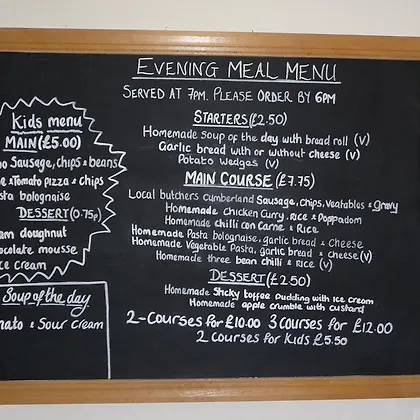 EVENING MEAL MENU
SERVED AT 7PM. PLEASE ORDER BY 6PM
STARTERS (£2.50)
Homemade Soup of the day with bread roll (V)
Garlic bread with or without cheese (V)
Potato wedges (V)
MAIN COURSE (£7.75)
Local butchers cumberland Sausage, Chips, Veatables & Gravy
Homemade Chicken Curry, Rice & Poppadom
Homemade chilli con Carne & Rice
Homemade Pasta bolognaise, garlic bread & Cheese
Homemade Vegetable Pasta, garlic bread & cheese (V)
Homemade three bean chilli & Rice (V)
DESSERT (£2.50)
Homemade Sticky toffee Pudding with ice cream
Homemade apple crumble with custard
2-Courses for £10.00 3 Courses for £12.00
2 Courses for Kids £5.50
Kids menu
MAIN (£5.00)
Sausage, chips & beans
& Tomato pizza & chips
Pasta bolognaise
DESSERT (0.75p)
doughnut
mousse
cream
Soup of the day
& Sour cream